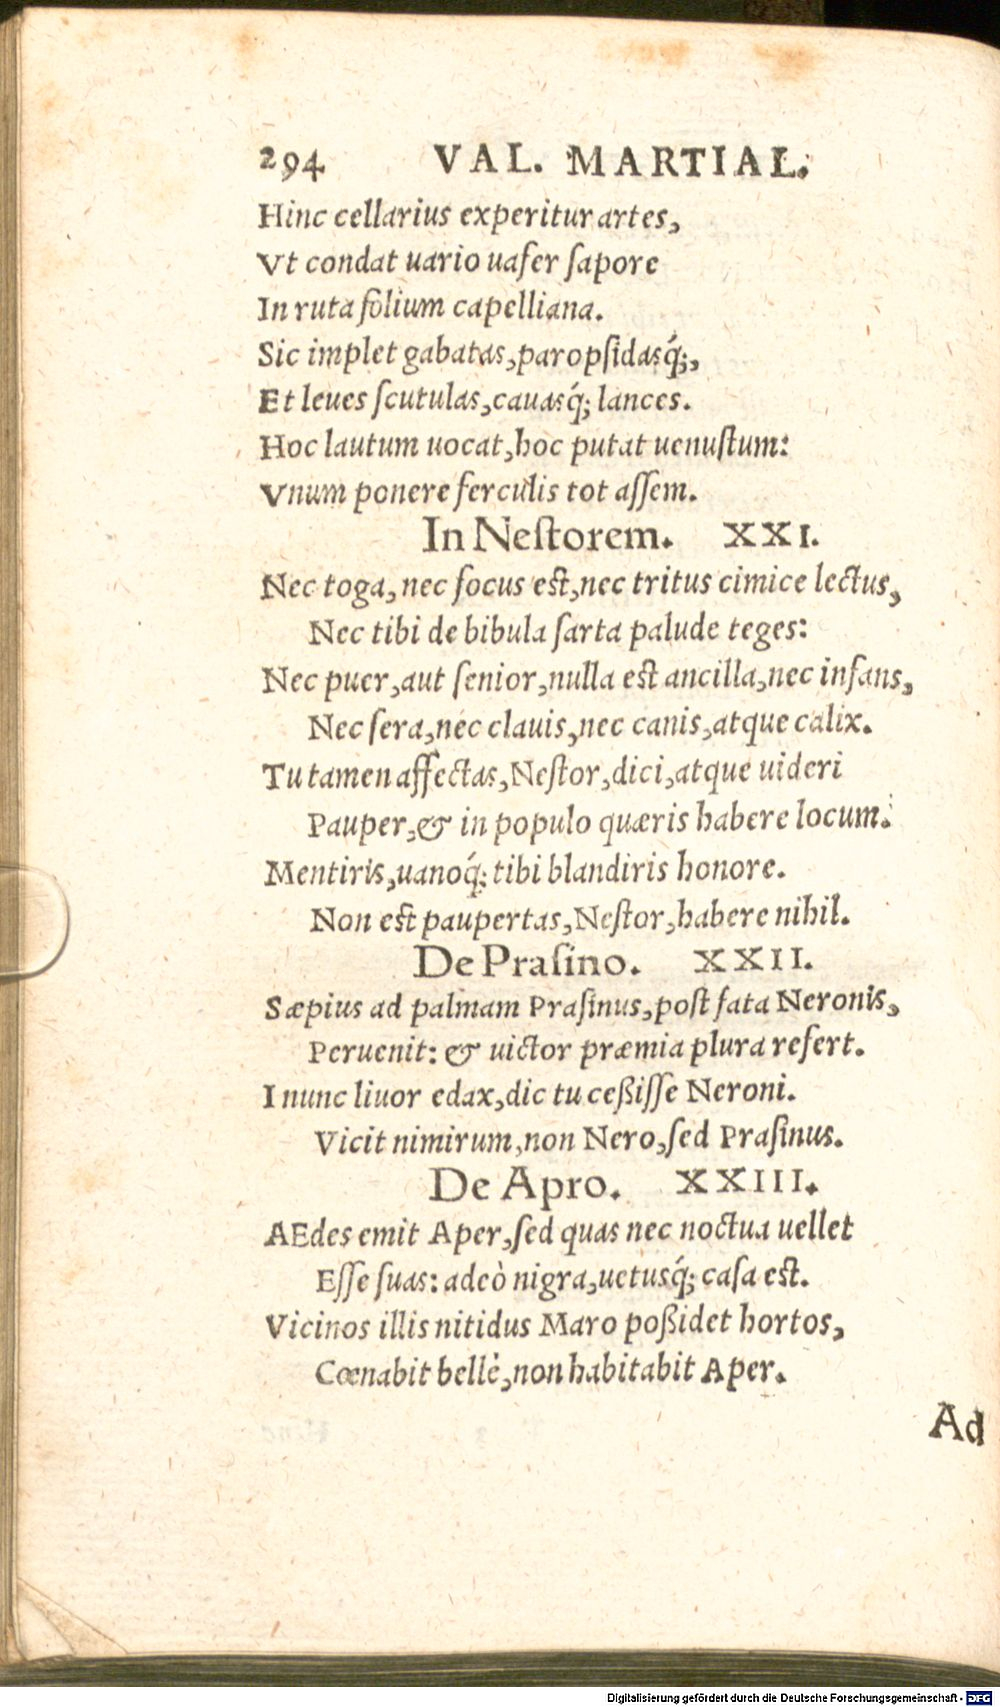 294 VAL. MARTIAL.
Hinc cellarius experitur artes,
Vt condat uario uafer ſapore
In ruta folium capelliana.
Sic implet gabatas, paropſidasq́;,
Et leues ſcutulas, cauasq́; lances.
Hoc lautum uocat, hoc putat uenuſtum:
Vnum ponere ferculis tot aſſem.
In Neſtorem. XXI.
Nec toga, nec focus eſt, nec tritus cimice lectus,
Nec tibi de bibula ſarta palude teges:
Nec puer, aut ſenior, nulla eſt ancilla, nec infans,
Nec ſera, nec clauis, nec canis, atque calix.
Tu tamen affectas, Neſtor, dici, atque uideri
Pauper, & in populo quæris habere locum.
Mentiris, uanoq́; tibi blandiris honore.
Non eſt paupertas, Neſtor, habere nihil.
De Praſino. XXII.
Sæpius ad palmam Praſinus, poſt fata Neronis,
Peruenit: & uictor præmia plura refert.
I nunc liuor edax, dic tu ceßiſſe Neroni.
Vicit nimirum, non Nero, ſed Praſinus.
De Apro. XXIII.
AEdes emit Aper, ſed quas nec noctua uellet
Eſſe ſuas: adeò nigra, uetusq́; caſa eſt.
Vicinos illis nitidus Maro poßidet hortos,
Cœnabit bellè, non habitabit Aper.
Ad
Digitalisierung gefördert durch die Deutsche Forschungsgemeinschaft - DFG